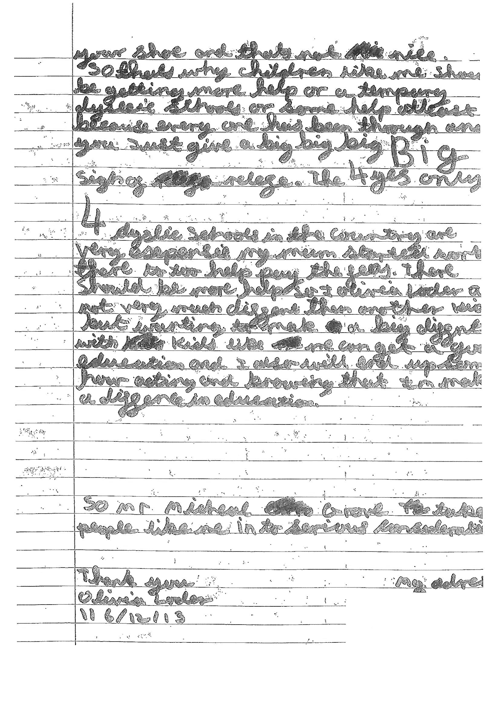 your shoe and thats not nice.
So thats why children like me shou
be getting more help or a tempury
dyslexic schools or some help atleast
because every one has been through and
you just give a big big big Big
sigh of relege. The 4 yes only
4 dyslic schools in the country are
very exspensie my mum
there to help pay the fees. There
should be more help So I olivia Loder a
not very much diggent then another
but wanting to mak a big diggen
with kids like me can get a
education and I also will end up
how acting and knowing that Im mak
a diggence in education.
So mr Micheal Grove to take
people like me in to serious consideratio
Thank you my adres
Olivia Loder
11 6/12/13